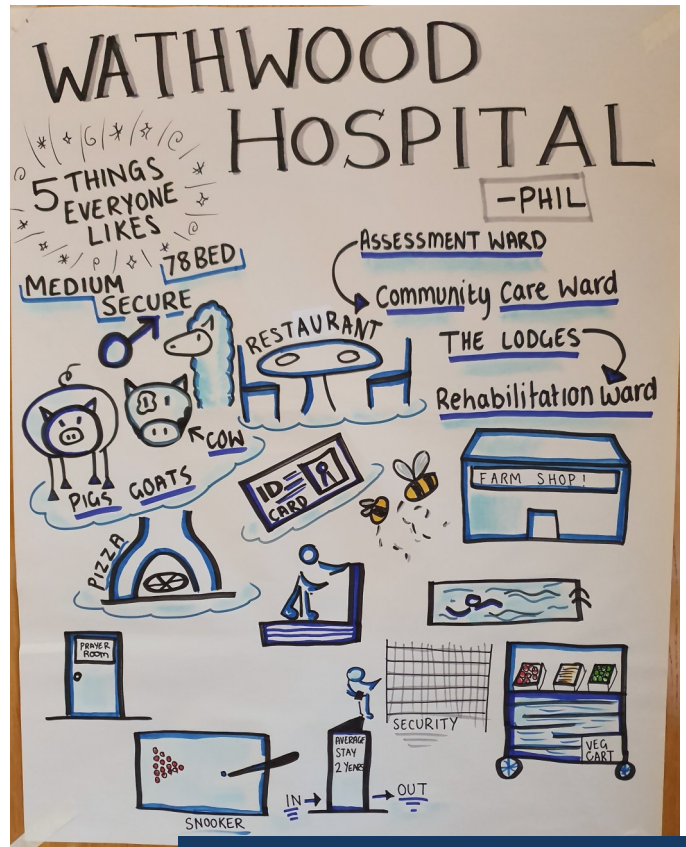 WATHWOOD
HOSPITAL
-PHIL
5 THINGS
EVERYONE
LIKES
78 BED
MEDIUM
SECURE
ASSESSMENT WARD
Community Care Ward
THE LODGES
Rehabilitation Ward
RESTAURANT
COW
PIGS GOATS
ID
CARD
FARM SHOP!
PIZZA
PRAYER
ROOM
SECURITY
AVERAGE
STAY
2 YEARS
IN
OUT
VEG
CART
SNOOKER